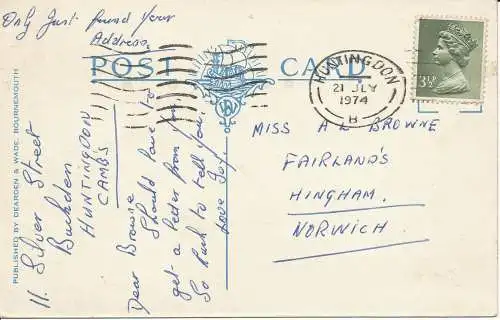 Only Just found Your
Address.
POST CARD
HUNTINGDON
21 JLY
1974
3½P
PUBLISHED BY DEARDEN & WADE, BOURNEMOUTH
11. Silver Street
Buckden
HUNTINGDON
CAMBS
Dear Browne
Should love to
get a letter from you
So much to tell you.
Love Joy
MISS A L BROWNE
FAIRLAND'S
HINGHAM.
NORWICH.